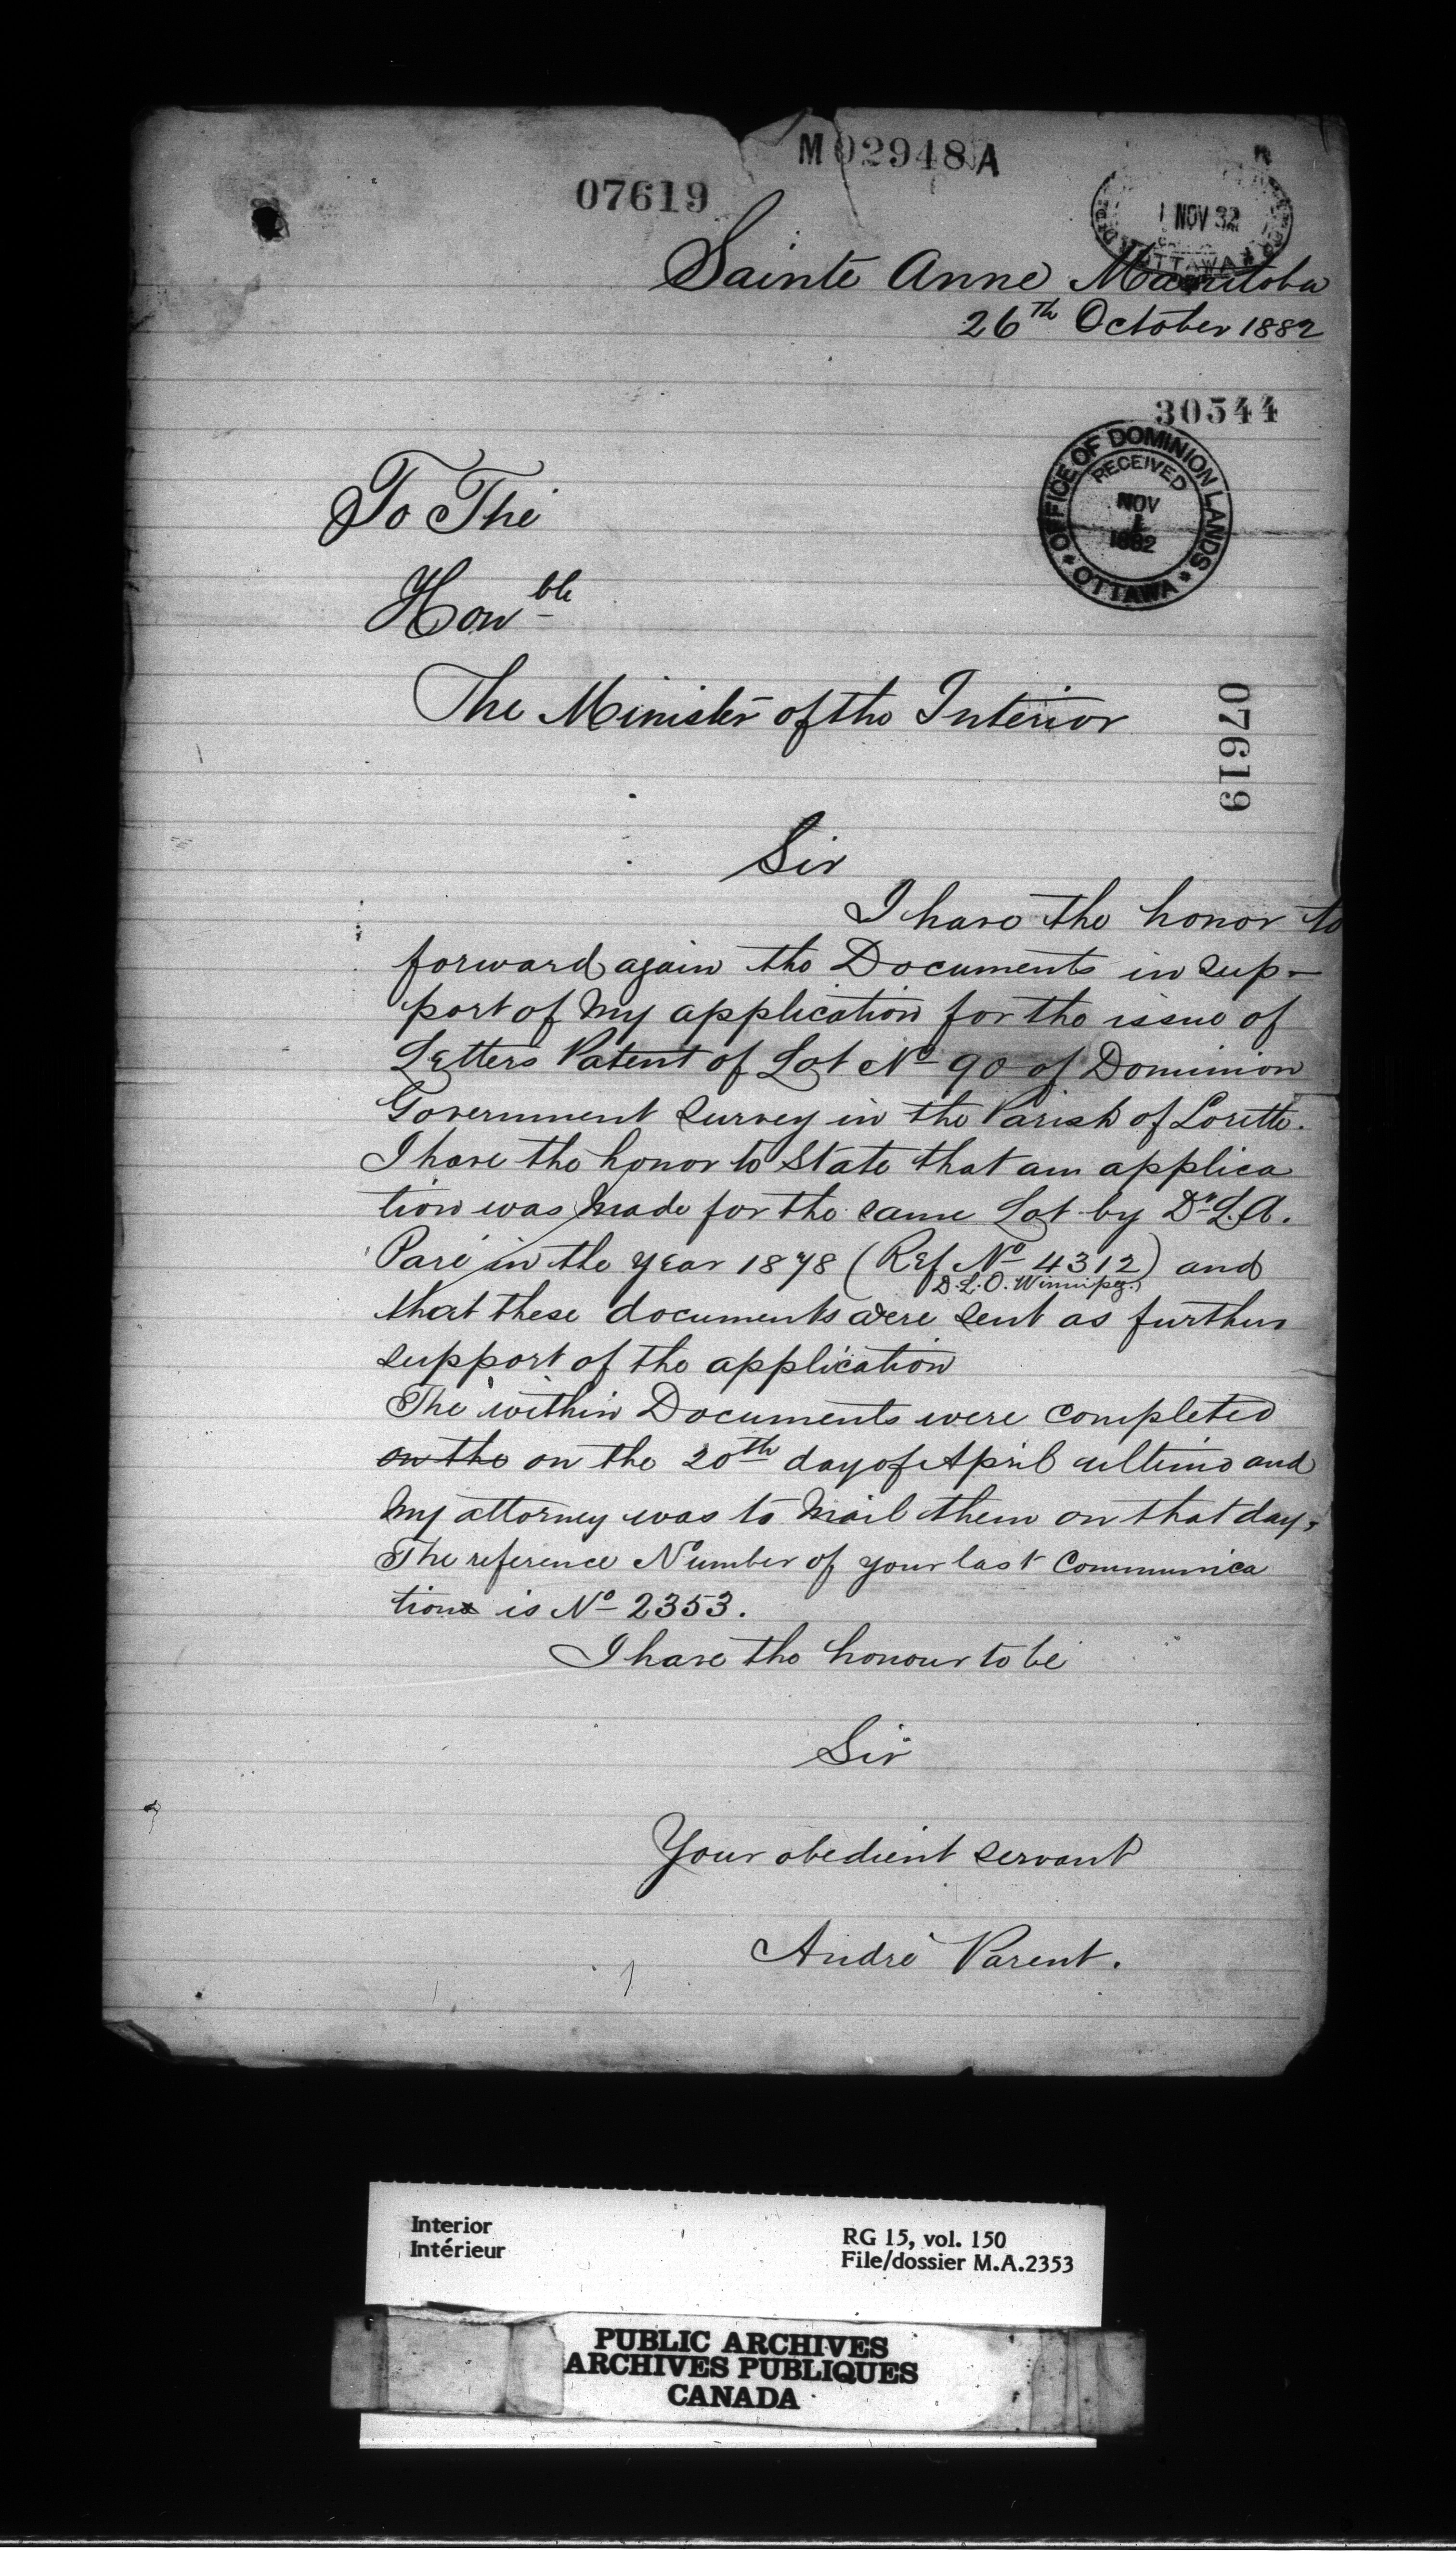 M 02948 A
07619
1 NOV 82
OTTAWA
Sainte Anne Manitoba
26th October 1882
30544
OFFICE OF DOMINION LANDS
RECEIVED
NOV
1
1882
OTTAWA
To The
Honble
The Minister of the Interior
07619
Sir
I have the honor to
forward again the Documents in sup-
port of my application for the issue of
Letters Patent of Lot No 90 of Dominion
Government Survey in the Parish of Lorette.
I have the honor to State that an applica
tion was made for the same Lot by Dr L.A.
Paré in the year 1878 (Ref No 4312) and
D.L.O. Winnipeg
that these documents were sent as further
support of the application
The within Documents were completed
on the on the 20th day of April ultimo and
my attorney was to mail them on that day.
The reference Number of your last Communica
tion is No 2353.
I have the honour to be
Sir
Your obedient servant
André Parent.
Interior
Intérieur
RG 15, vol. 150
File/dossier M.A.2353
PUBLIC ARCHIVES
ARCHIVES PUBLIQUES
CANADA